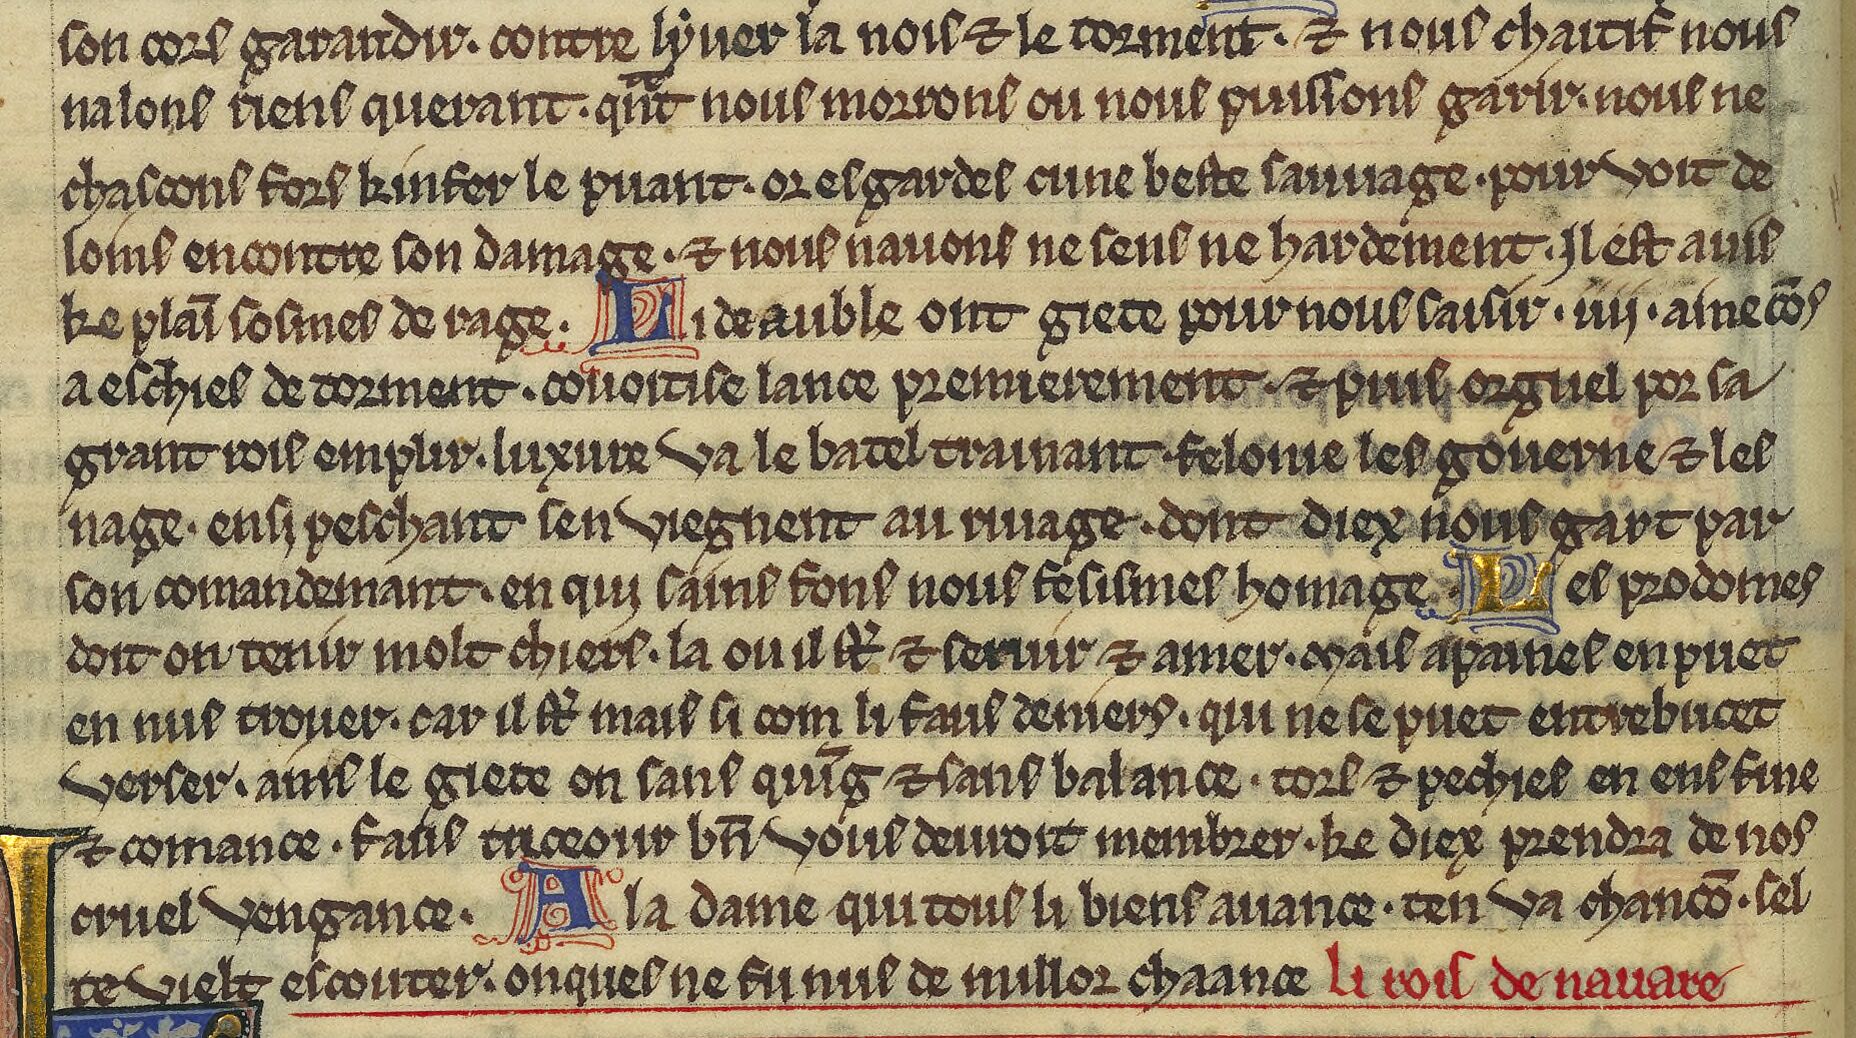 son cors garandir. contre lyuer la nois ⁊ le torment. ⁊ nous chaitif nous
nalons riens querant. qͣnt nous morrons ou nous puissons garir. nous ne
chascons fors kinfer le puant. or esgardes cune beste sauuage. pour voit de
loins encontre son damage. ⁊ nous nauons ne sens ne hardement. Il est auis
ke plaī somes de rage. Li deauble ont giete pour nous saisir. iiij. ainecōs
a eschies de torment. couoitise lance premierement. ⁊ puis orguel por sa
grant rois emplir. luxure va le batel trainant. felonie les gouerne ⁊ les
nage. ensi peschant sen viegnent au riuage. dont diex nous gart par
son comandemant. en qui sains fons nous fesismes homage. Les prodomes
doit on tenir molt chiers. la ou il st̄ ⁊ seruir ⁊ amer. mais apaines en puet
en nus trouer. car il st̄ mais si com li faus deniers. qui ne se puet entrebucet
verser. ains le giete on sans ⁊ sans balance. tors ⁊ pechies en ens fine
⁊ comance. faus triceour bn̄ vous deuroit membrer. ke diex prendra de nos
cruel vengance. A la dame qui tous li biens auance. ten va chancō. sel
te vielt escouter. onques ne fu nus de millor chaance li rois de nauare